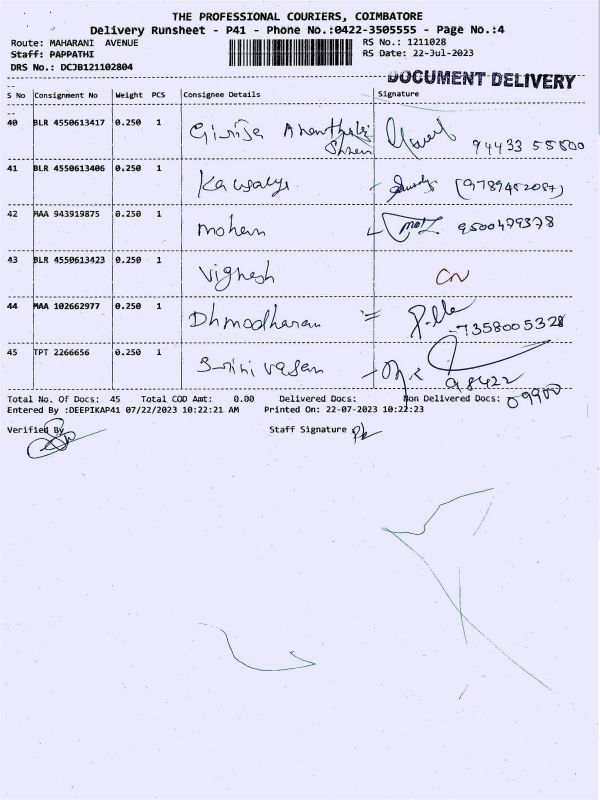 THE PROFESSIONAL COURIERS, COIMBATORE
Delivery Runsheet - P41 - Phone No.:0422-3505555 - Page No.:4
Route: MAHARANI AVENUE RS No.: 1211028
Staff: PAPPATHI RS Date: 22-Jul-2023
DRS No.: DCJB121102804
DOCUMENT DELIVERY
S No Consignment No Weight PCS Consignee Details Signature
40 BLR 4550613417 0.250 1 Girija 94433 55800
41 BLR 4550613406 0.250 1 Kausalya (9789452087)
42 MAA 943919875 0.250 1 mohan 9500479378
43 BLR 4550613423 0.250 1 Vignesh CN
44 MAA 102662977 0.250 1 Dhmodharan 7358005328
45 TPT 2266656 0.250 1 Srinivasan 98422
09900
Total No. Of Docs: 45 Total COD Amt: 0.00 Delivered Docs: Non Delivered Docs:
Entered By :DEEPIKAP41 07/22/2023 10:22:21 AM Printed On: 22-07-2023 10:22:23
Verified By Staff Signature